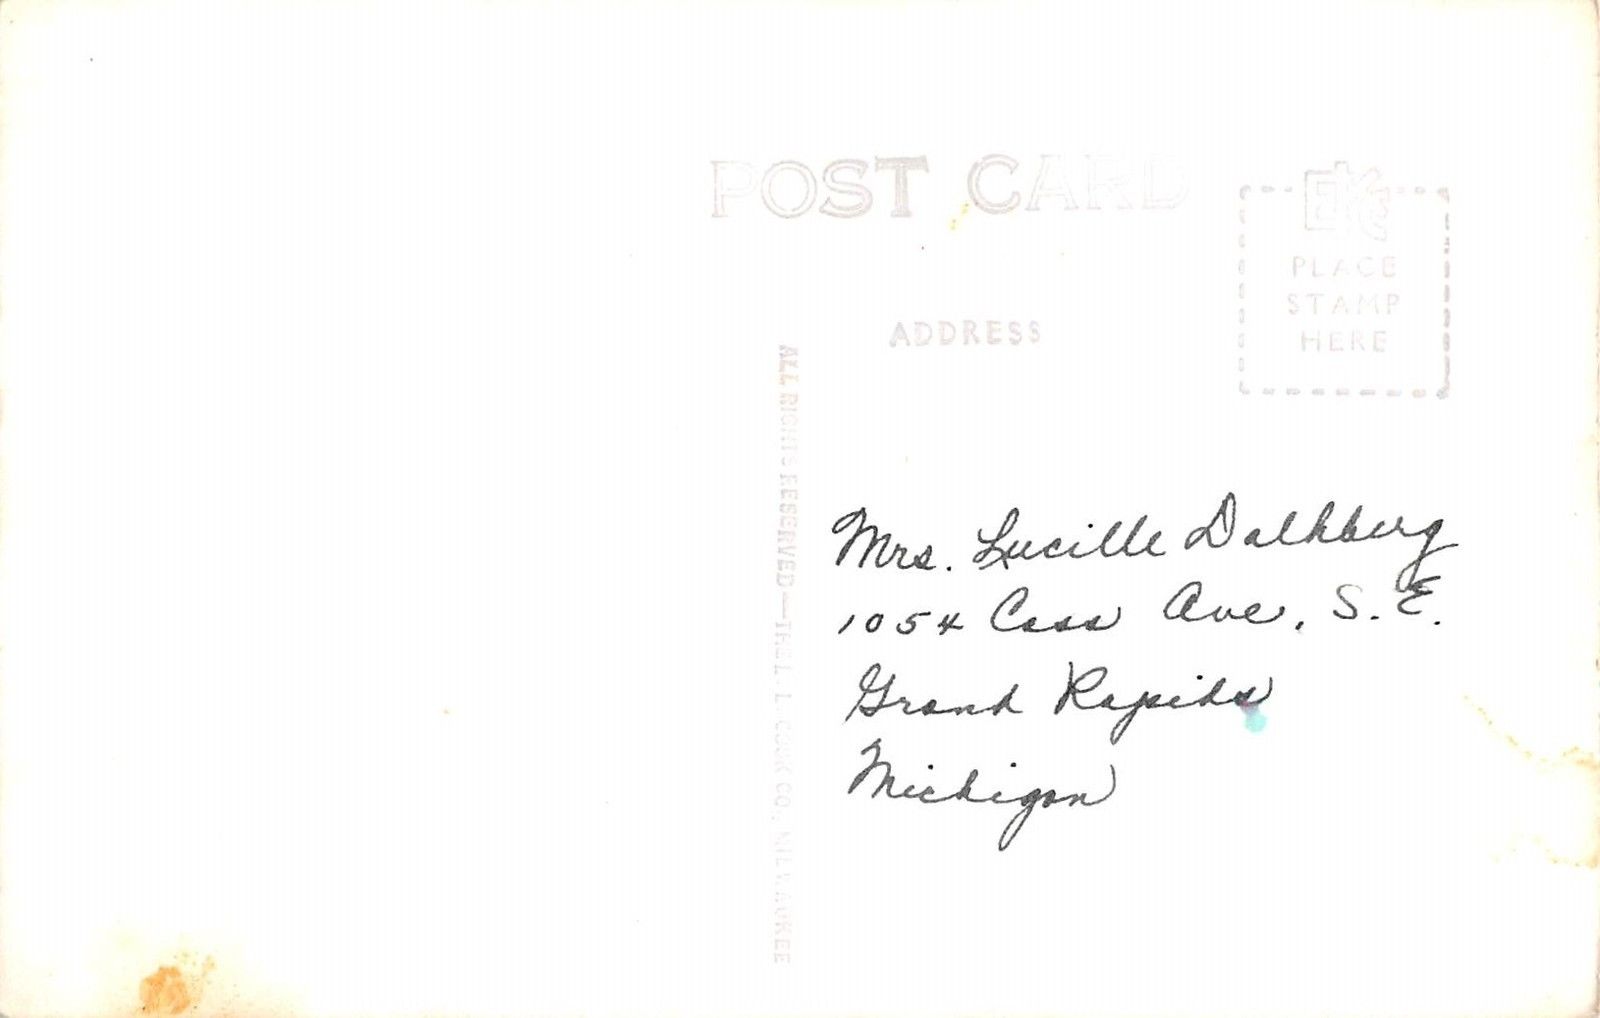 POST CARD
EKC
PLACE
STAMP
HERE
ADDRESS
ALL RIGHTS RESERVED—THE L. L. COOK CO., MILWAUKEE
Mrs. Lucille Dalhberg
1054 Cass Ave, S.E.
Grand Rapids
Michigan